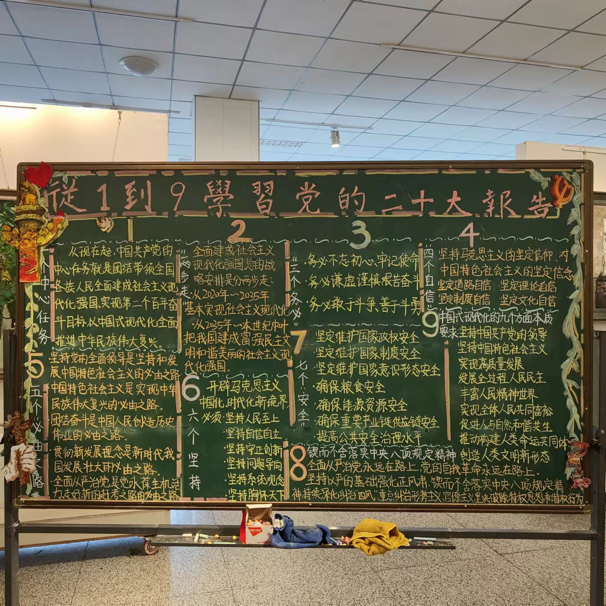 從1到9學習党的二十大報告
1
一个中心任务
从现在起，中国共产党的
中心任务就是团结带领全国
各族人民全面建成社会主义现
代化强国、实现第二个百年奋
斗目标，以中国式现代化全面
推进中华民族伟大复兴。
2
两步走
全面建成社会主义
现代化强国总的战
略安排是分两步走：
从2020年-2035年
基本实现社会主义现代化
从2035年-本世纪中叶
把我国建成富强民主文
明和谐美丽的社会主义现
代化强国
3
三个务必
·务必不忘初心、牢记使命
·务必谦虚谨慎、艰苦奋斗
·务必敢于斗争、善于斗争
4
四个自信
坚持马克思主义的坚定信仰、对
中国特色社会主义的坚定信念
坚定道路自信 坚定理论自信
坚定制度自信 坚定文化自信
5
五个必由之路
坚持党的全面领导是坚持和发
展中国特色社会主义的必由之路。
中国特色社会主义是实现中华
民族伟大复兴的必由之路。
团结奋斗是中国人民创造历史
伟业的必由之路。
贯彻新发展理念是新时代我
国发展壮大的必由之路。
全面从严治党是党永葆生机活
力、走好新的赶考之路的必由之路
6
六个坚持
开辟马克思主义
中国化时代化新境界
必须：·坚持人民至上
·坚持自信自立
·坚持守正创新
·坚持问题导向
·坚持系统观念
·坚持胸怀天下
7
七个安全
坚定维护国家政权安全
坚定维护国家制度安全
坚定维护国家意识形态安全
·确保粮食安全
·确保能源资源安全
·确保重要产业链供应链安全
·提高公共安全治理水平
8
锲而不舍落实中央八项规定精神
全面从严治党永远在路上，党的自我革命永远在路上。
坚持以严的基调强化正风肃纪，锲而不舍落实中央八项规定精
神，持续深化纠治四风，重点纠治形式主义、官僚主义，坚决破除特权思想和特权行为
9
中国式现代化的九个方面本质
要求：坚持中国共产党的领导
坚持中国特色社会主义
实现高质量发展
发展全过程人民民主
丰富人民精神世界
实现全体人民共同富裕
促进人与自然和谐共生
推动构建人类命运共同体
创造人类文明新形态